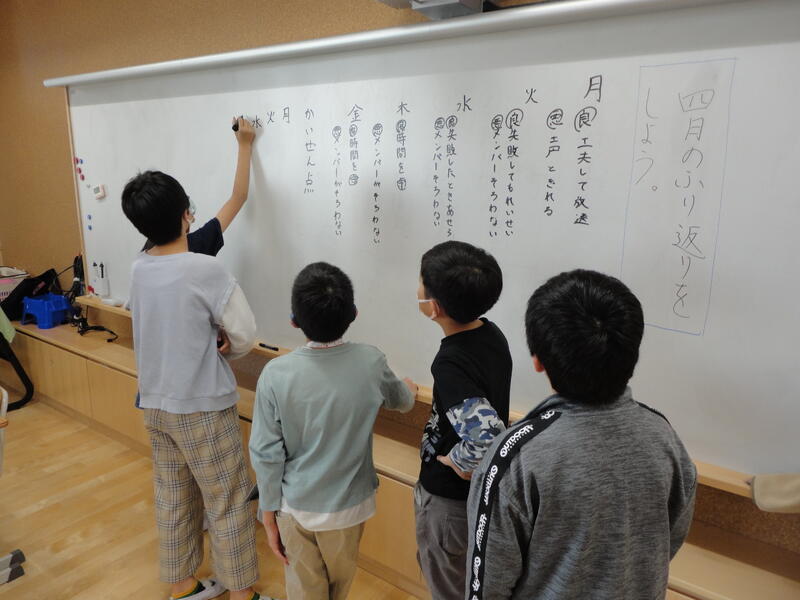 四月のふり返りを
しよう。
月
良 工夫して放送
悪 声とぎれる
火
良 失敗してもれいせい
悪 メンバーそろわない
水
良 失敗したときあせる
悪 メンバーそろわない
木
良 時間を
悪 メンバーがそろわない
金
良 時間を
悪 メンバーがそろわない
かいせん点
月
火
水